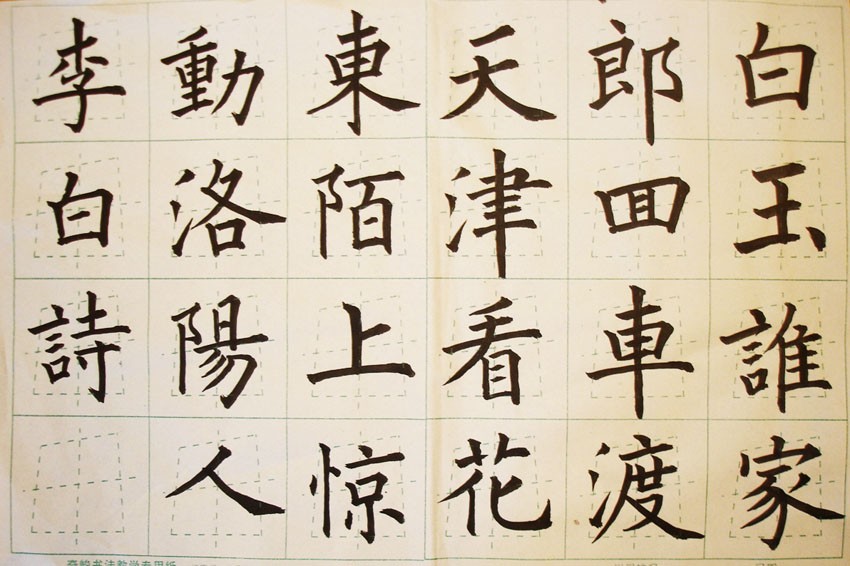 白玉誰家
郎回車渡
天津看花
東陌上惊
動洛陽人
李白詩